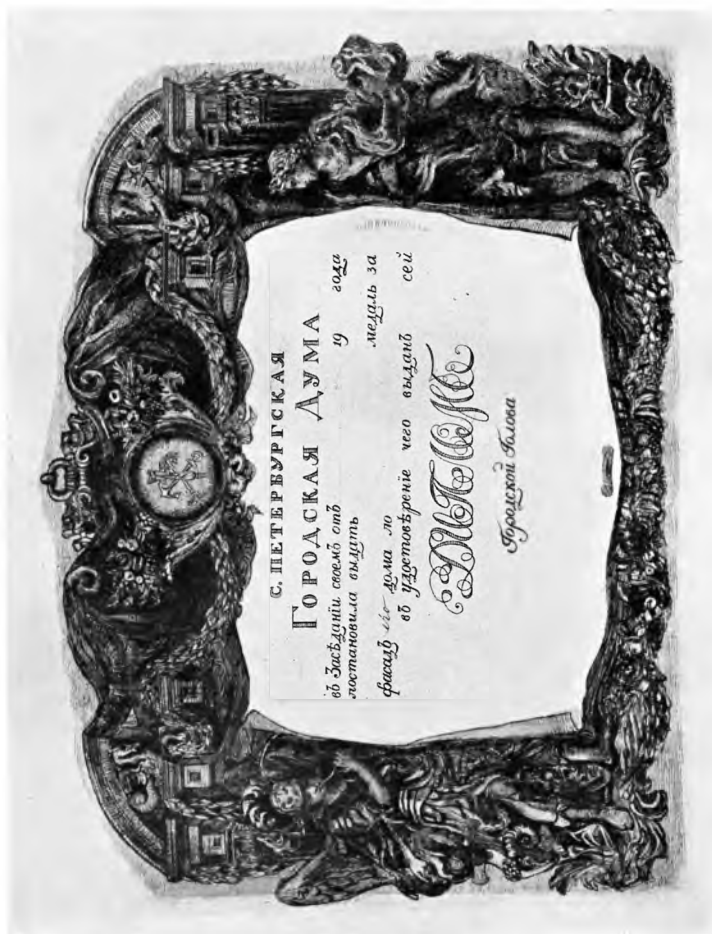 С. ПЕТЕРБУРГСКАЯ
ГОРОДСКАЯ ДУМА
въ Засѣданіи своемъ отъ 19 года
постановила выдать медаль за
фасадъ его дома по
въ удостовѣреніе чего выданъ сей
ДИПЛОМЪ
Городской Голова